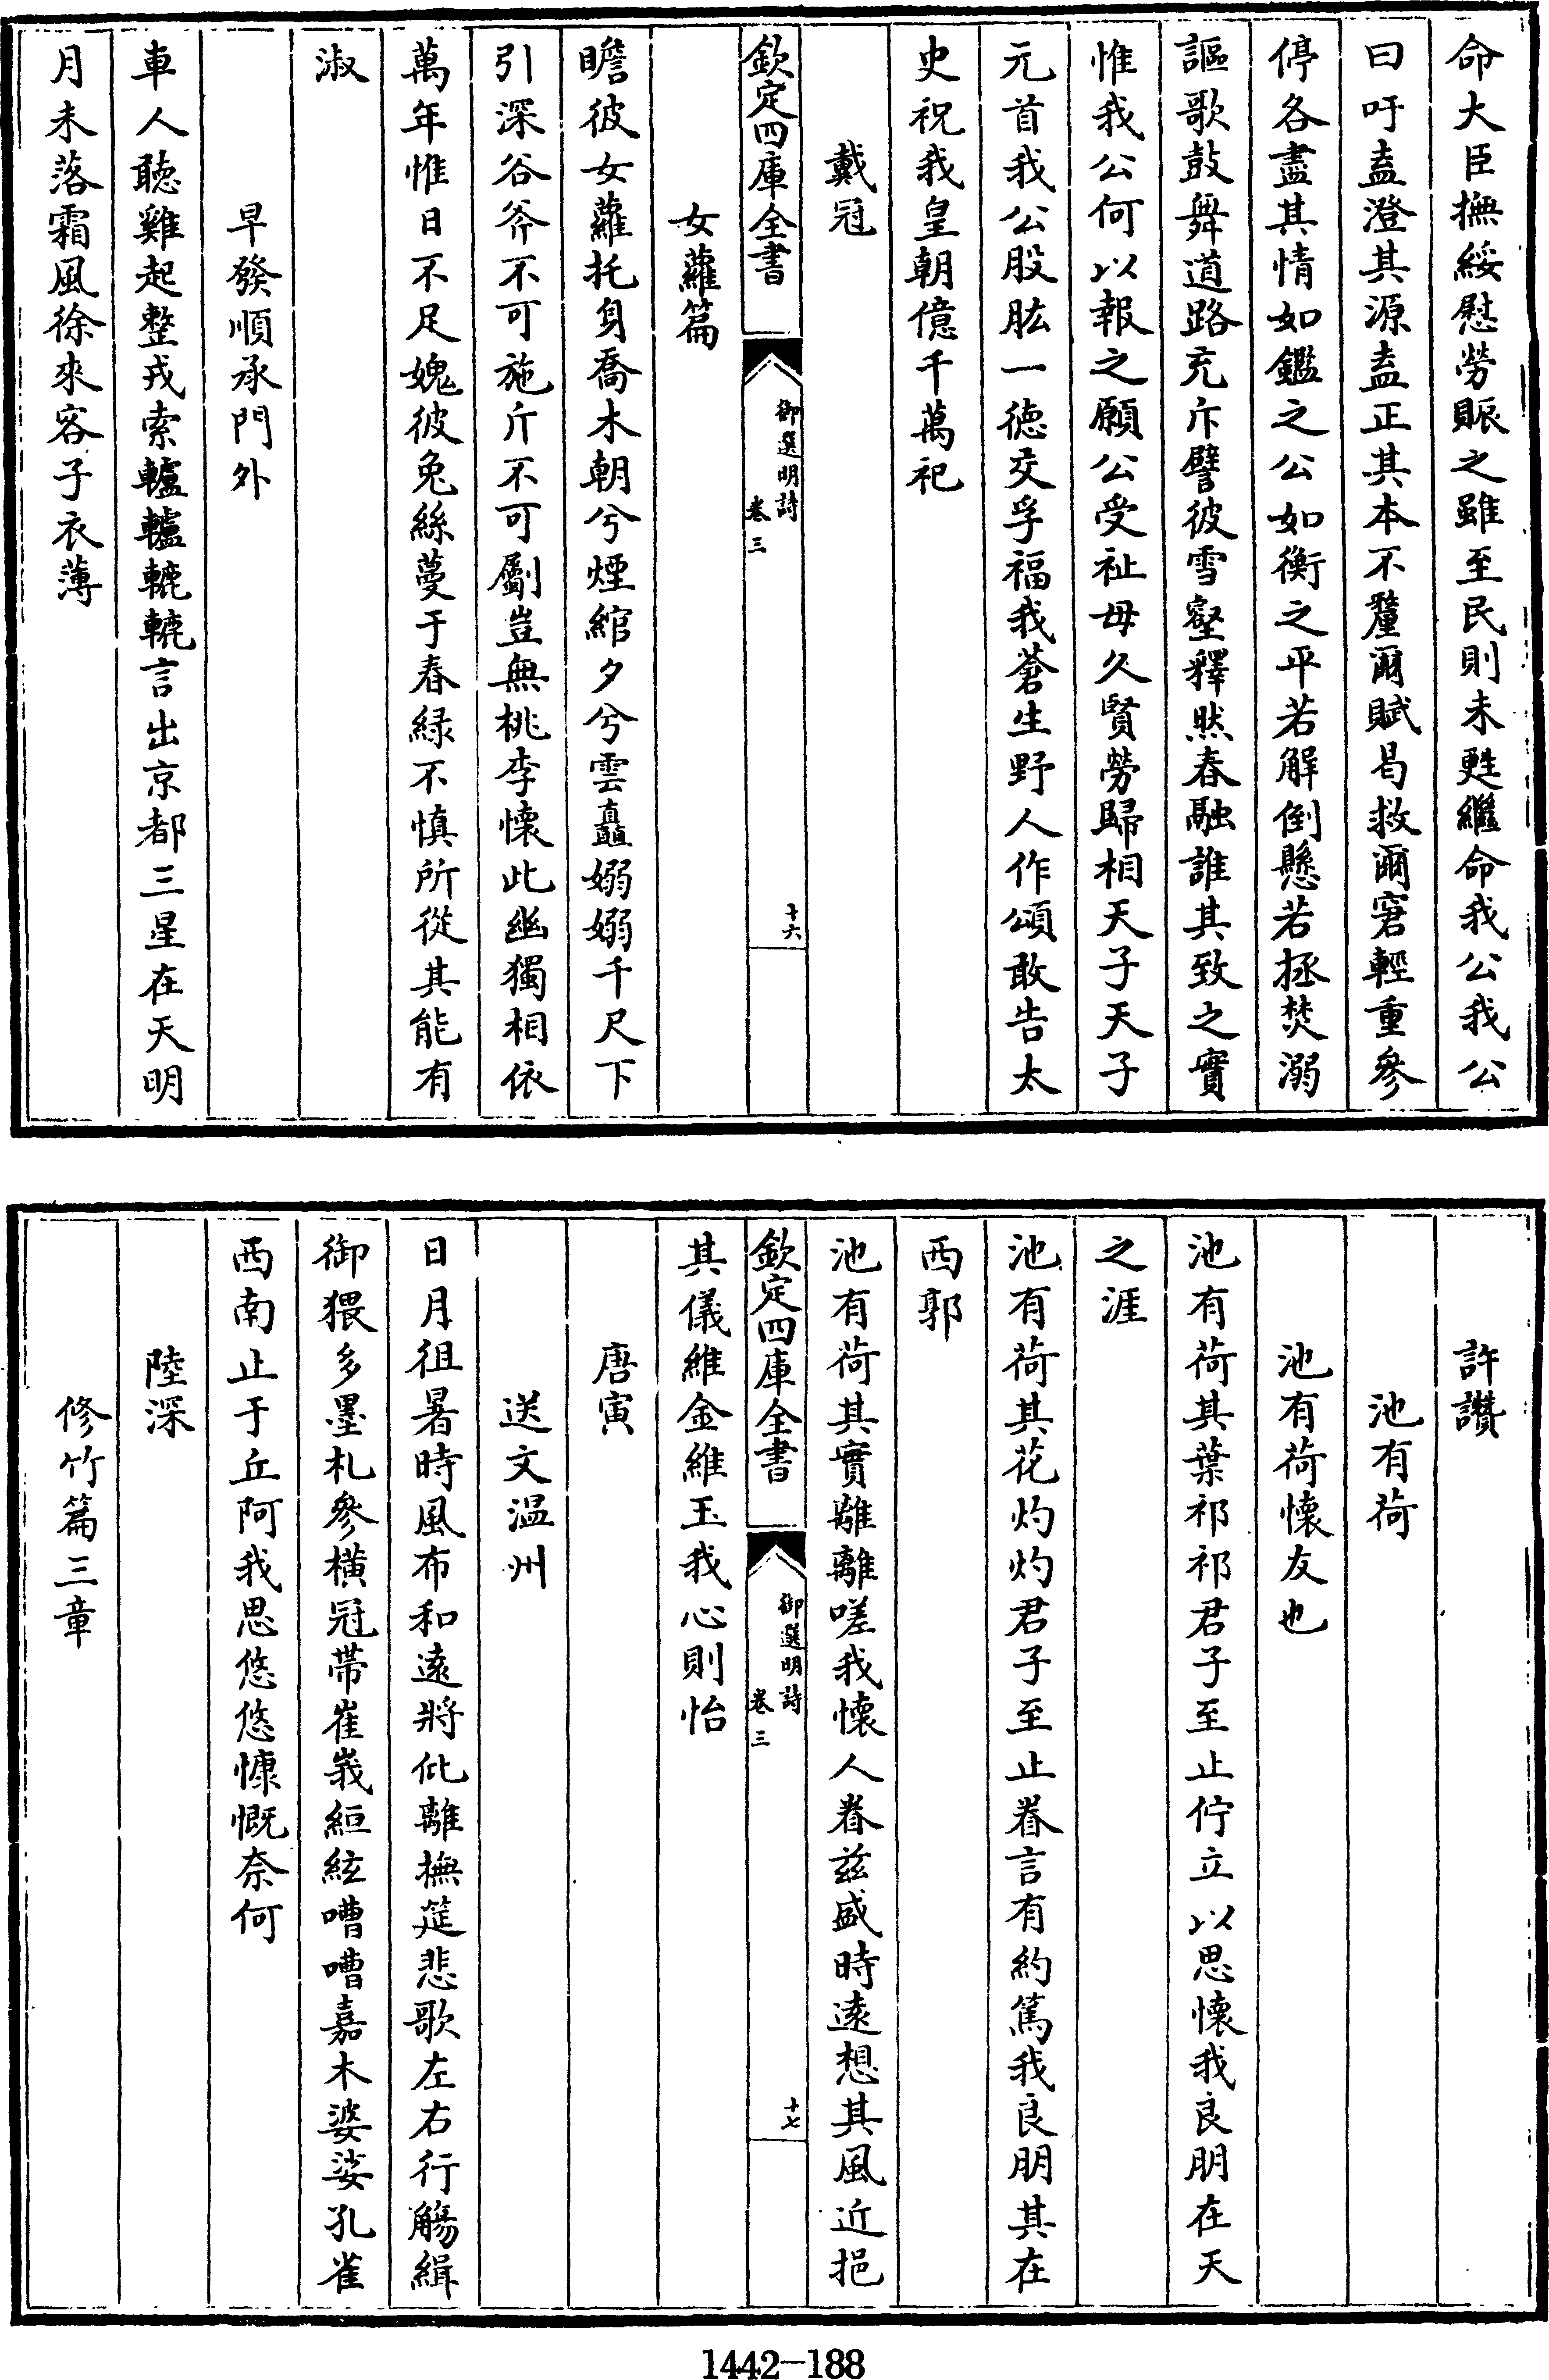 命大臣撫綏慰勞賑之雖至民則未甦繼命我公我公
曰吁盍澄其源盍正其本不釐爾賦曷救爾窘輕重參
停各盡其情如鑑之公如衡之平若解倒懸若拯焚溺
謳歌鼓舞道路充斥譬彼雪壑釋然春融誰其致之實
惟我公何以報之願公受祉毋久賢勞歸相天子天子
元首我公股肱一徳交孚福我蒼生野人作頌敢告太
史祝我皇朝億千萬祀
戴冠
欽定四庫全書
御選明詩
卷三
十六
女蘿篇
瞻彼女蘿托身喬木朝兮煙綰夕兮雲矗嫋嫋千尺下
引深谷斧不可施斤不可斸豈無桃李懷此幽獨相依
萬年惟日不足媿彼兔絲蔓于春緑不慎所從其能有
淑
早發順承門外
車人聽雞起整戎索轤轤轆轆言出京都三星在天明
月未落霜風徐來客子衣薄
許讚
池有荷
池有荷懷友也
池有荷其葉祁祁君子至止佇立以思懷我良朋在天
之涯
池有荷其花灼灼君子至止眷言有約篤我良朋其在
西郭
池有荷其實離離嗟我懷人眷兹盛時遠想其風近挹
欽定四庫全書
御選明詩
卷三
十七
其儀維金維玉我心則怡
唐寅
送文温州
日月徂暑時風布和遠將仳離撫筵悲歌左右行觴緝
御猥多墨札參橫冠帶崔峩絙絃嘈嘈嘉木婆娑孔雀
西南止于丘阿我思悠悠慷慨奈何
陸深
修竹篇三章
1442-188